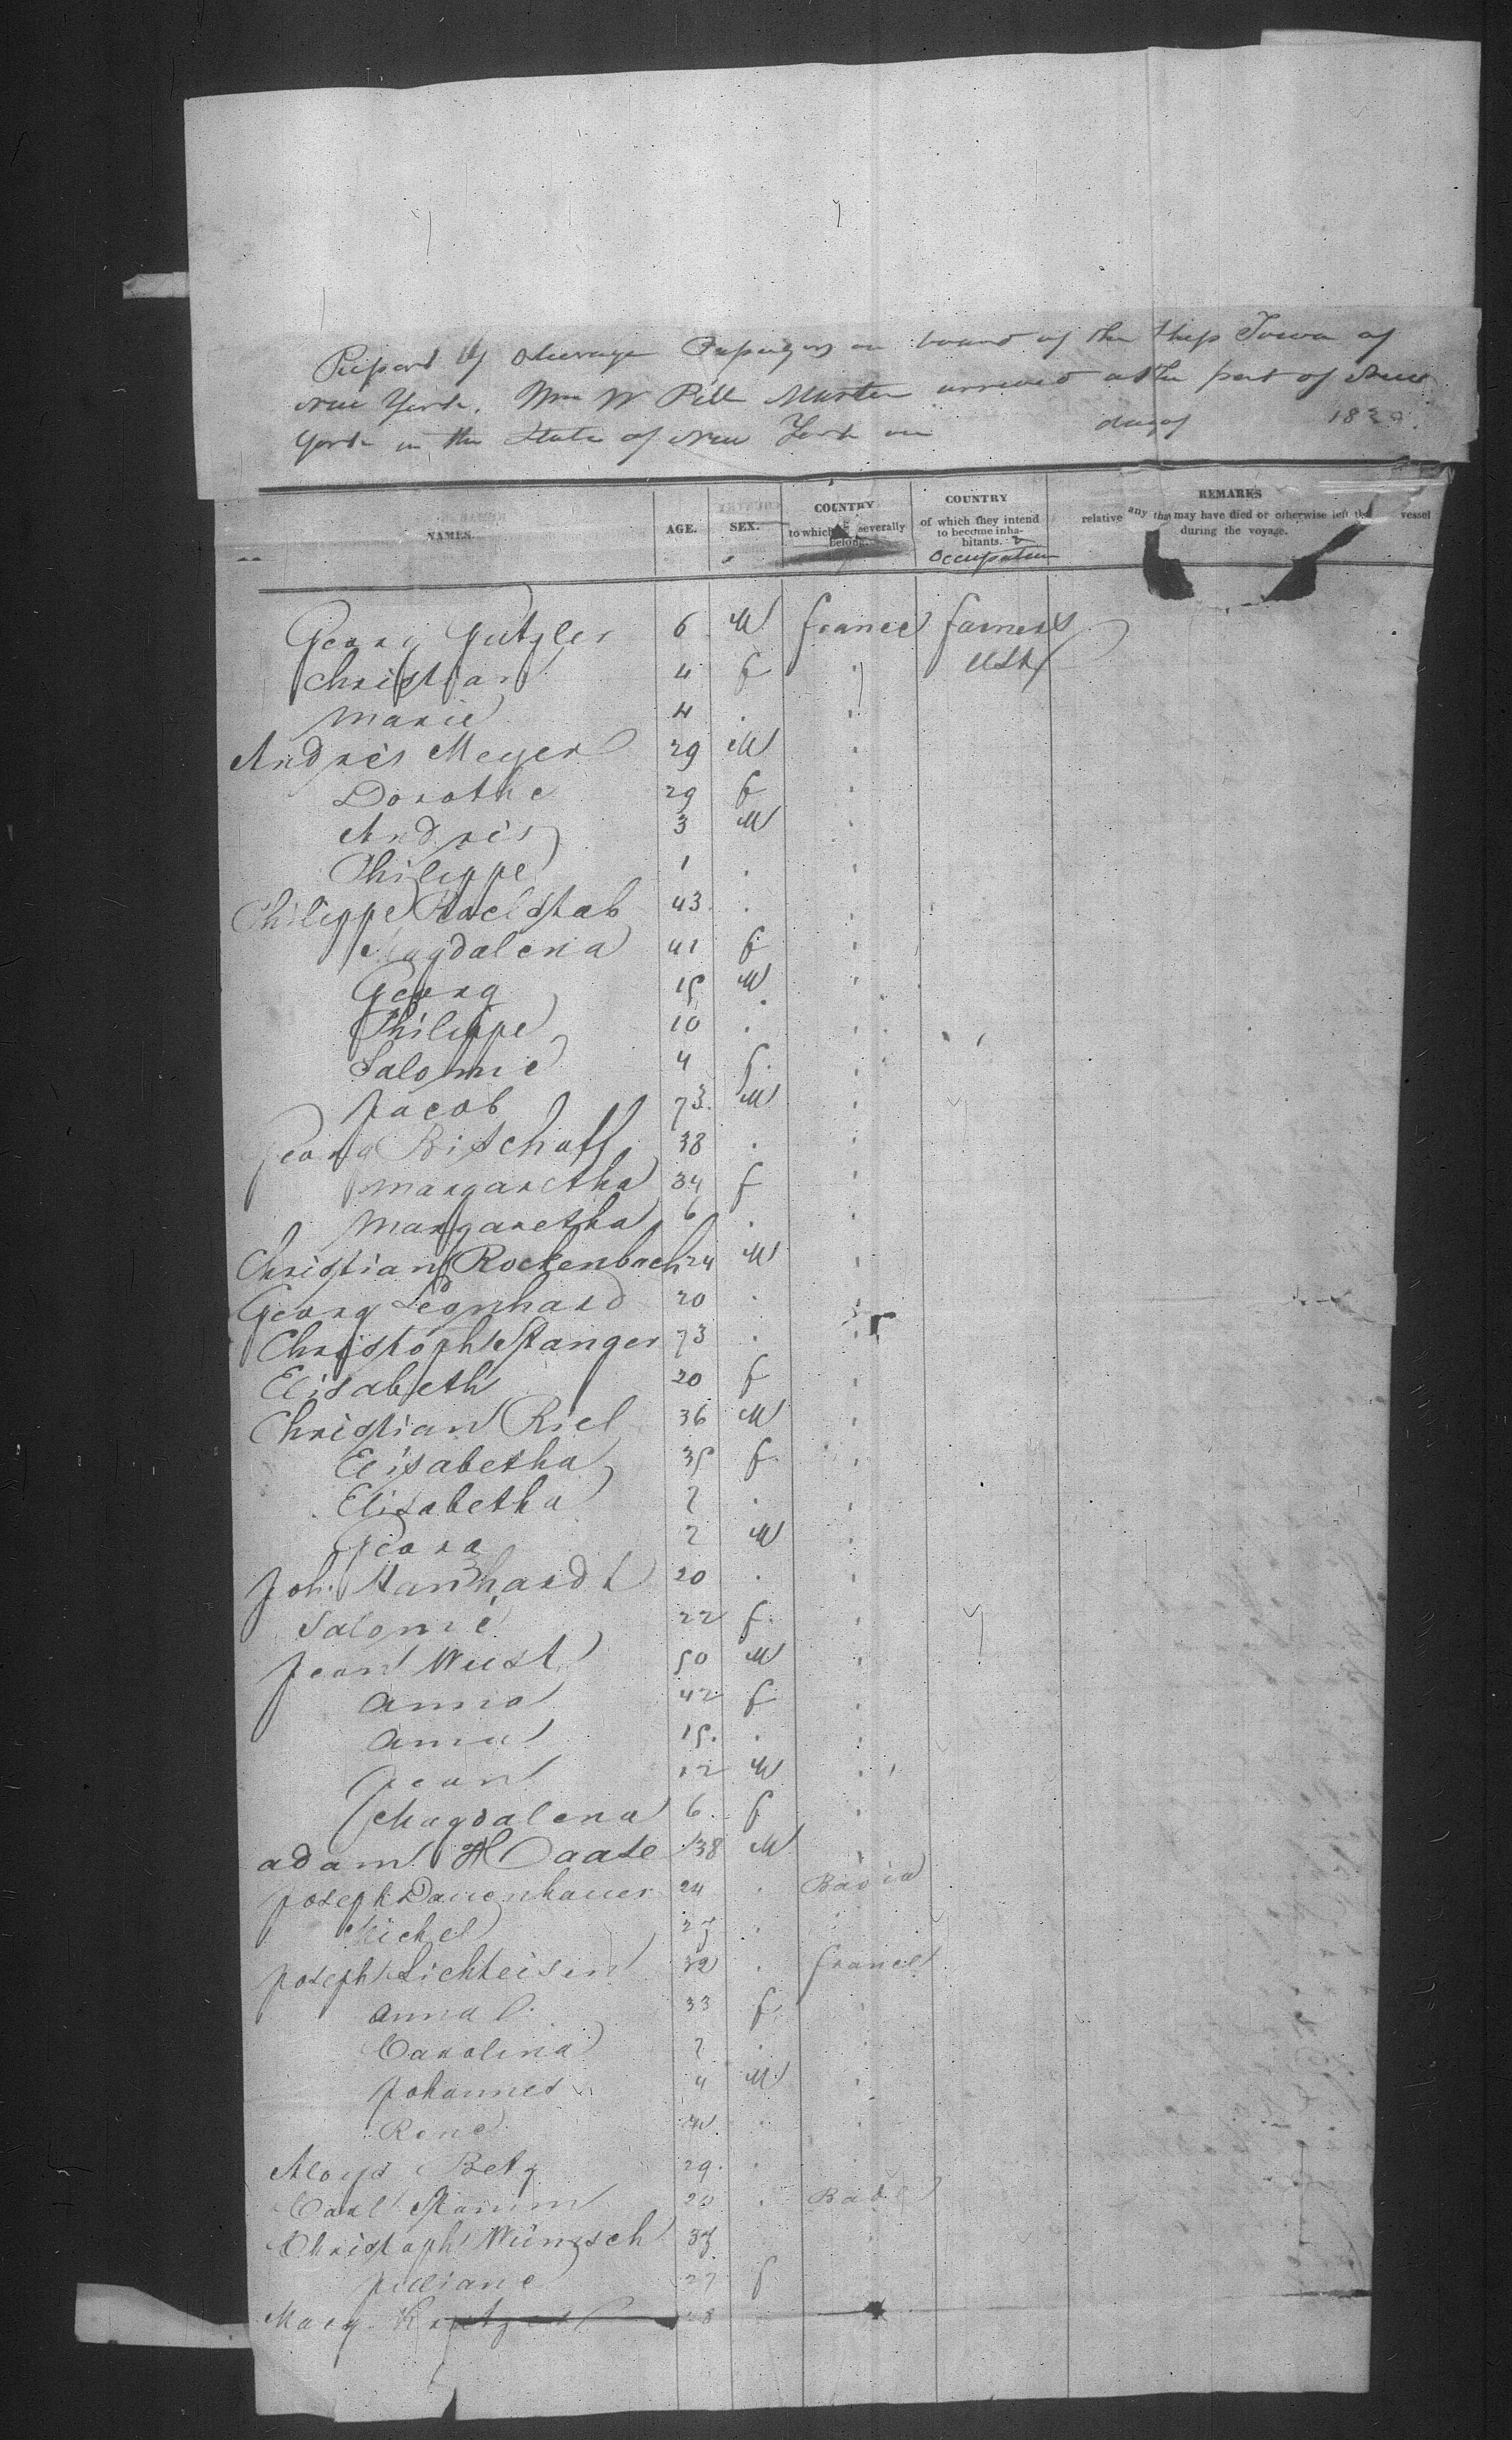 Report of Steerage Passengers on board of the Ship Iowa of
New York. Wm W Pell Master arrived at the port of New
York in the State of New York on day of 183
NAMES. AGE. SEX. COUNTRY to which severally belong. COUNTRY of which they intend to become inhabitants. & Occupation REMARKS relative any that may have died or otherwise left the vessel during the voyage.
Georg Gutzler 6 M france farmers
Christian 4 f " USA
Marie 4 . "
Andres Meyer 29 M "
Dorothe 29 f "
Andres 3 M "
Philippe 1 . "
Philippe Raelstab 43 . "
Magdalena 41 f "
Georg 15 M "
Philippe 10 . "
Salomie 4 f "
Jacob 73 M "
Georg Bischoff 38 . "
Margaretha 34 f "
Margaretha 6 . "
Christian Rockenbach 24 M "
Georg Leonhard 20 . "
Christoph Stanger 73 . "
Elisabeth 20 f "
Christian Riel 36 M "
Elisabetha 35 f "
Elisabetha 7 . "
Georg 2 M "
Joh. Manhardt 20 . "
Salomé 22 f. "
Jean Wust 50 M "
Anna 42 f "
Anna 15. . "
Jean 12 M "
Magdalena 6 f "
Adam Haase 38 M "
Joseph Dauenhauer 24 .
Michel 27 . "
Joseph Lichteisen 32 . france
Anna 33 f "
Carolina 7 . "
Johannes 4 M "
René . "
Aloys Betz 29. . "
Carl Stamm 20 .
Christoph Wünsch 37
Julliane 27 f